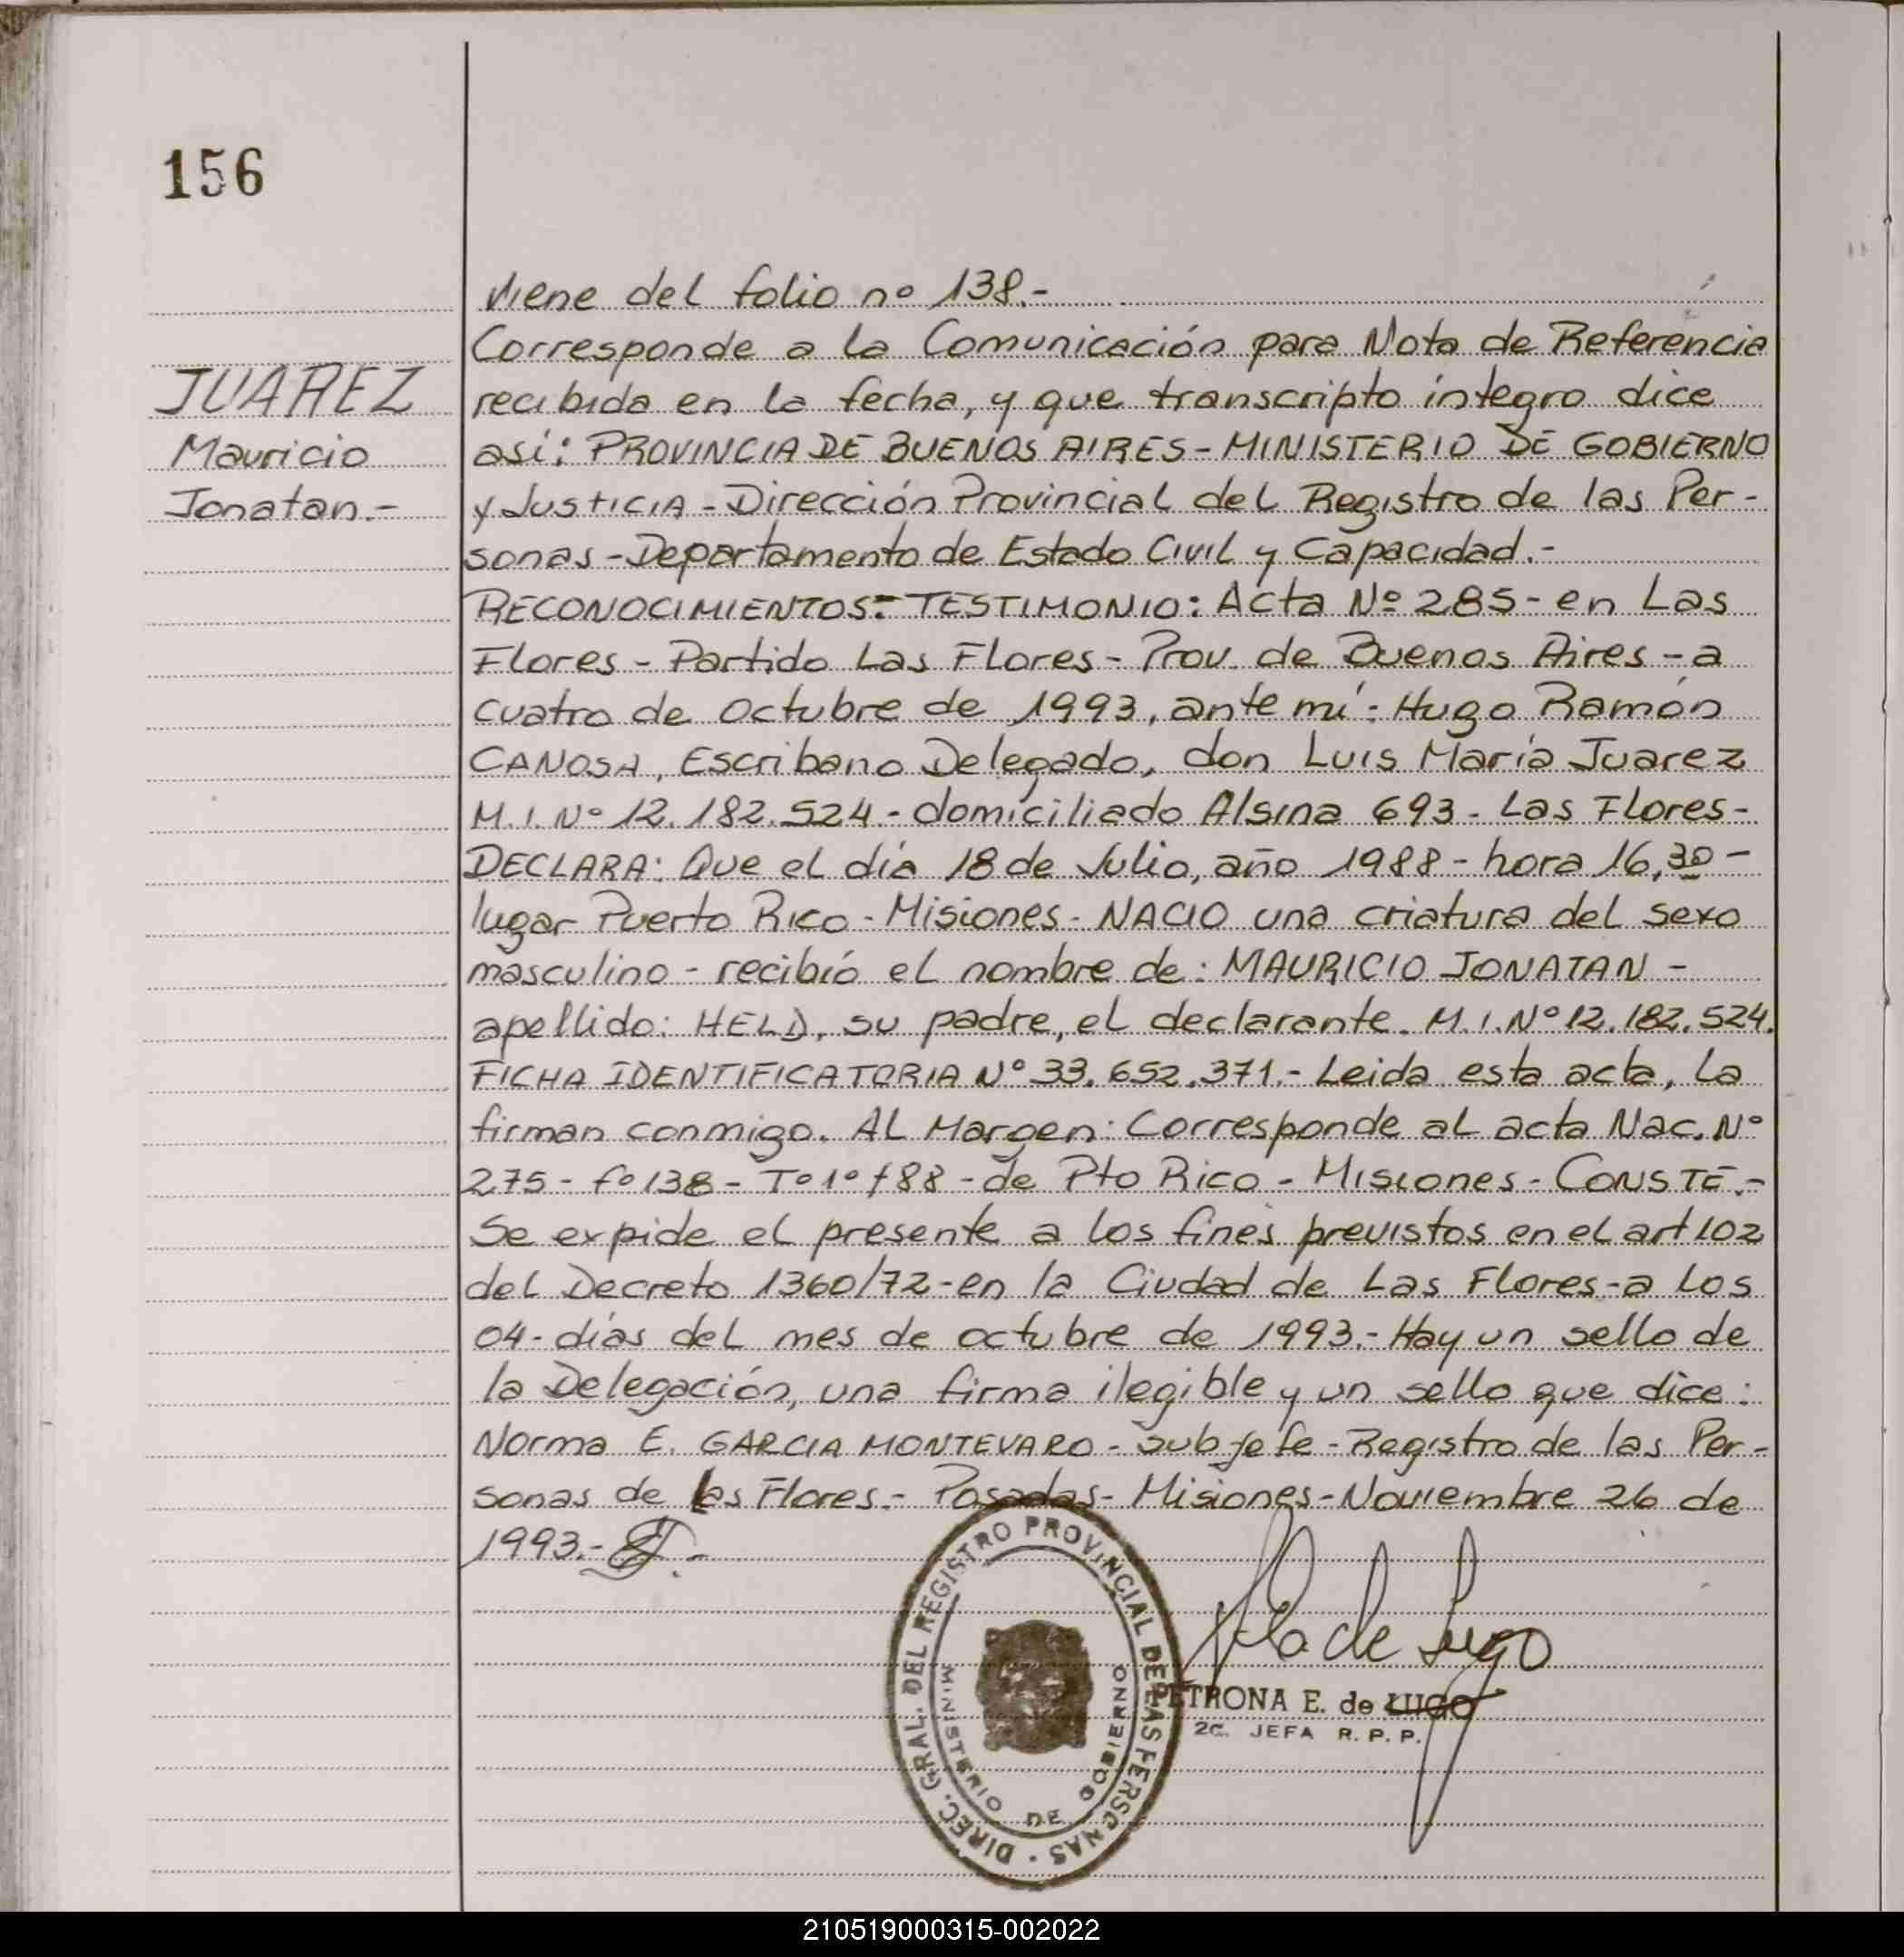 156
JUAREZ
Mauricio
Jonatan.-
viene del folio nº 138.-
Corresponde a la Comunicación para Nota de Referencia
recibida en la fecha, y que transcripto íntegro dice
así: PROVINCIA DE BUENOS AIRES - MINISTERIO DE GOBIERNO
Y JUSTICIA - Dirección Provincial del Registro de las Per-
sonas - Departamento de Estado Civil y Capacidad.-
RECONOCIMIENTOS = TESTIMONIO: Acta Nº 285 - en Las
Flores - Partido Las Flores - Prov. de Buenos Aires - a
cuatro de Octubre de 1993, ante mí: Hugo Ramón
CANOSA, Escribano Delegado, don Luis María Juarez
M.I. Nº 12.182.524 - domiciliado Alsina 693 - Las Flores -
DECLARA: Que el día 18 de Julio, año 1988 - hora 16,30 -
lugar Puerto Rico - Misiones - NACIO una criatura del sexo
masculino - recibió el nombre de: MAURICIO JONATAN -
apellido: HELD, su padre, el declarante. M.I. Nº 12.182.524.
FICHA IDENTIFICATORIA Nº 33.652.371.- Leida esta acta, la
firman conmigo. AL Margen: Corresponde al acta Nac. Nº
275 - fº 138 - Tº 1º /88 - de Pto Rico - Misiones - CONSTE.-
Se expide el presente a los fines previstos en el art 102
del Decreto 1360/72 - en la Ciudad de Las Flores - a los
04 - días del mes de octubre de 1993.- Hay un sello de
la Delegación, una firma ilegible y un sello que dice:
Norma E. GARCIA MONTEVARO - Subjefe - Registro de las Per-
sonas de las Flores.- Posadas - Misiones - Noviembre 26 de
1993.-
DIREC. GRAL. DEL REGISTRO PROVINCIAL DE LAS PERSONAS
MINISTERIO DE GOBIERNO
de Lugo
PETRONA E. de LUGO
2C. JEFA R.P.P.
210519000315-002022